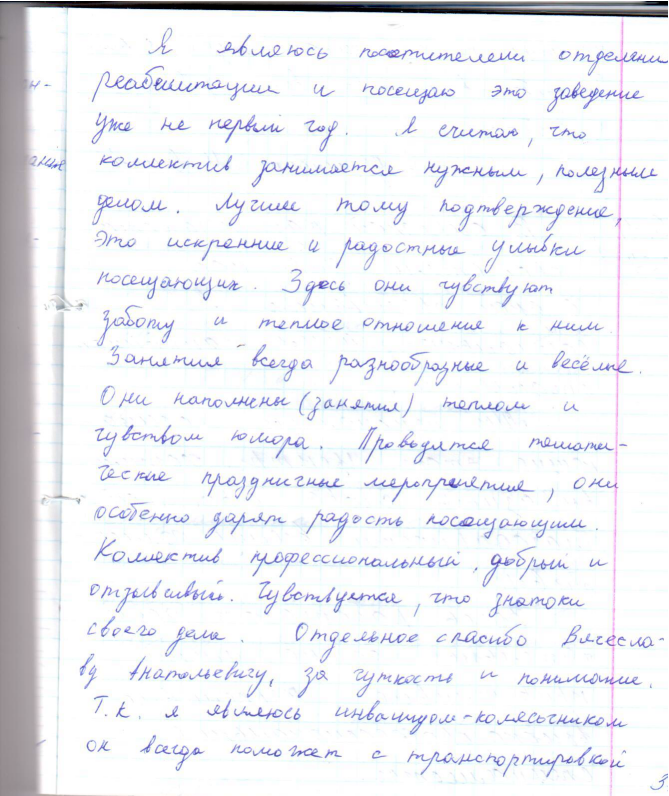 Я являюсь посетителем отделени
реабилитации и посещаю это заведение
уже не первый год. Я считаю, что
коллектив занимается нужным, полезным
делом. Лучшее тому подтверждение,
это искренние и радостные улыбки
посещающих. Здесь они чувствуют
заботу и теплое отношение к ним.
Занятия всегда разнообразные и весёлые.
Они наполнены (занятия) теплом и
чувством юмора. Проводятся темати-
ческие праздничные мероприятия, они
особенно дарят радость посещающим.
Коллектив профессиональный, добрый и
отзывчивый. Чувствуется, что знатоки
своего дела. Отдельное спасибо Вячесла-
ву Анатольевичу, за чуткость и понимание.
Т.к. я являюсь инвалидом-колясочником
он всегда поможет с транспортировкой
3